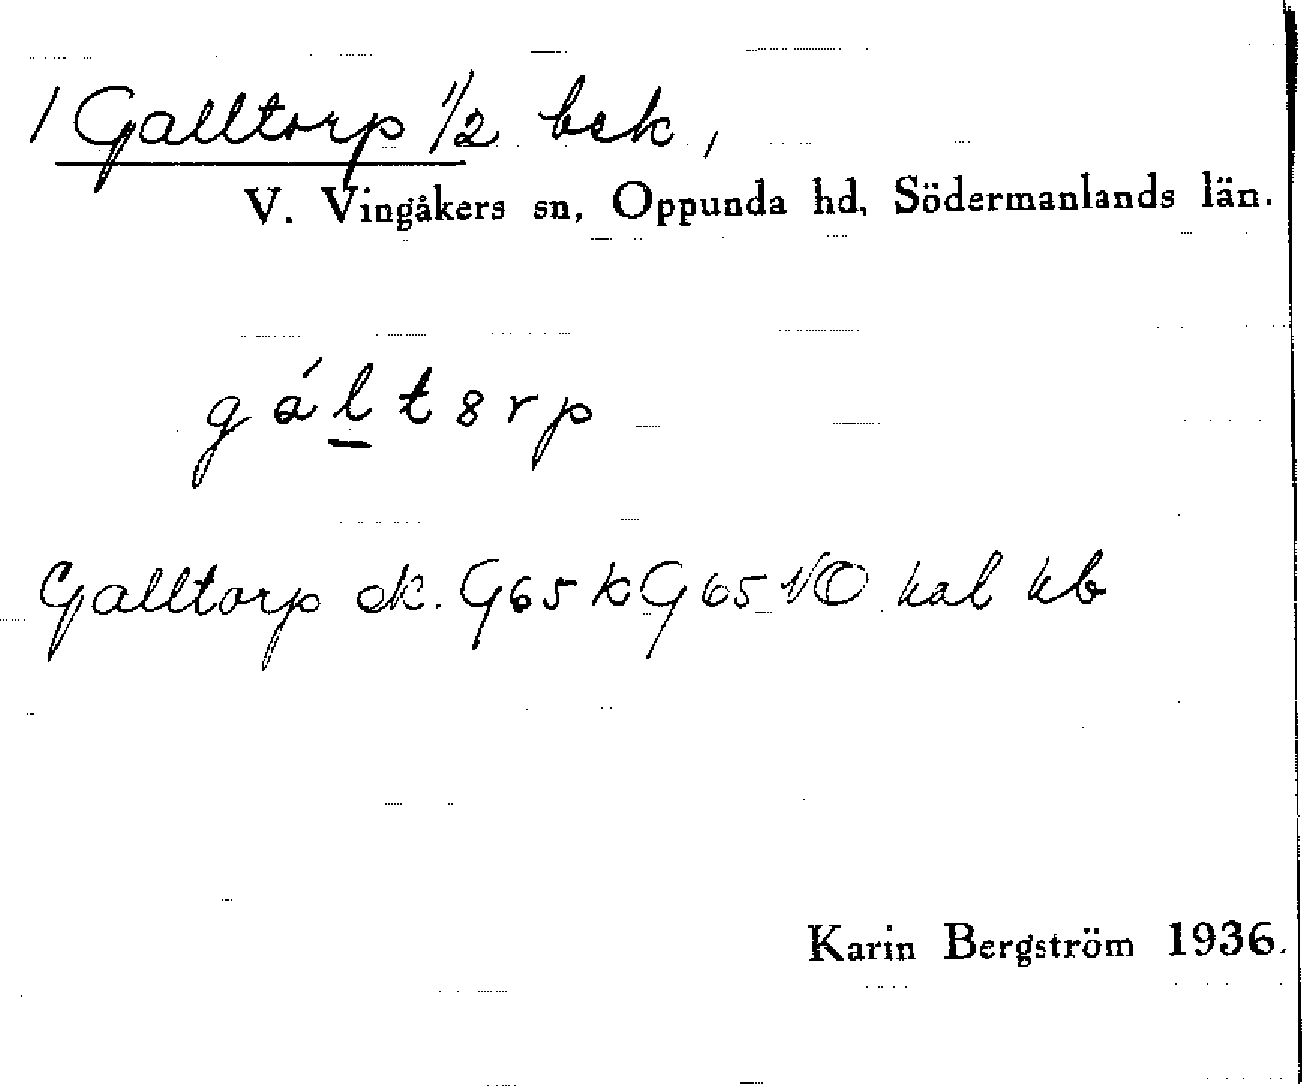 1 Galltorp 1/2 bek,
V. Vingåkers sn, Oppunda hd, Södermanlands län.
gáltɞrp
Galltorp ek. G65 k G65 VO hal kb
Karin Bergström 1936.